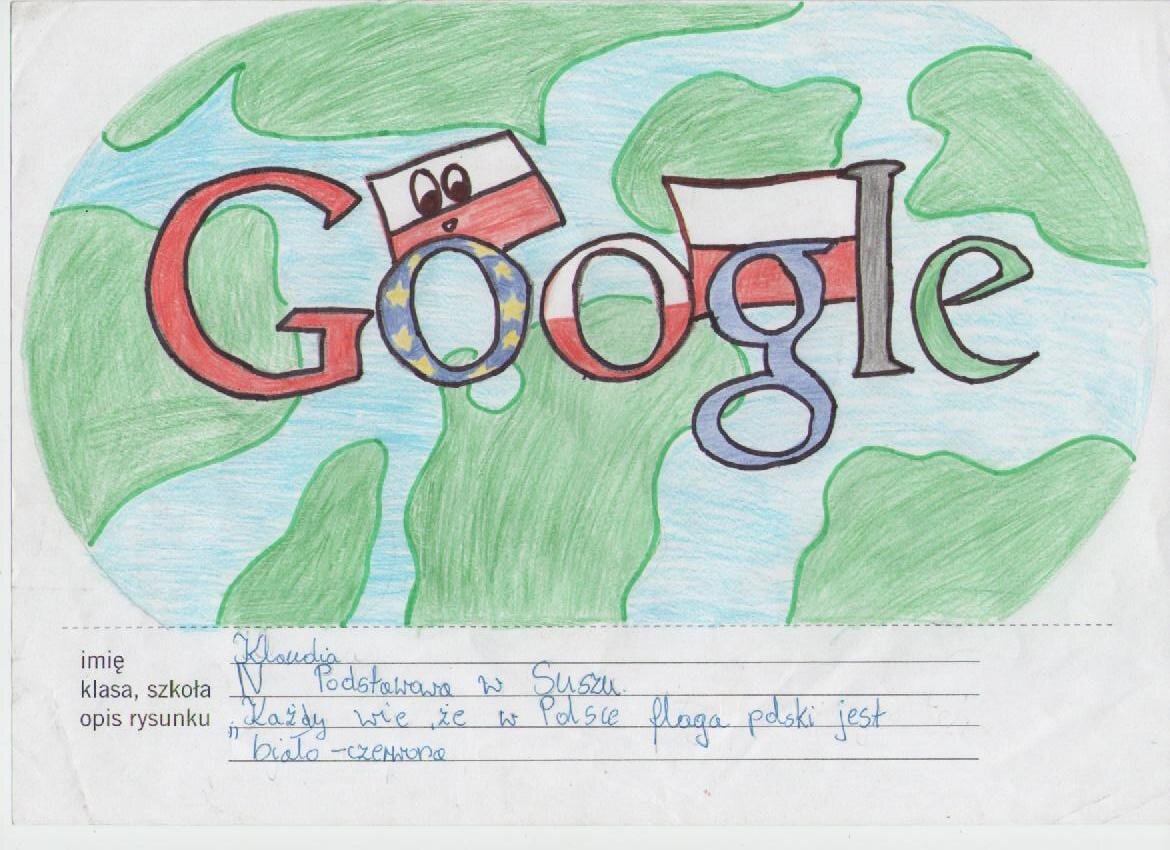 Google
imię Klaudia
klasa, szkoła IV Podstawowa w Suszu.
opis rysunku „Każdy wie że w Polsce flaga polski jest
biało-czerwona